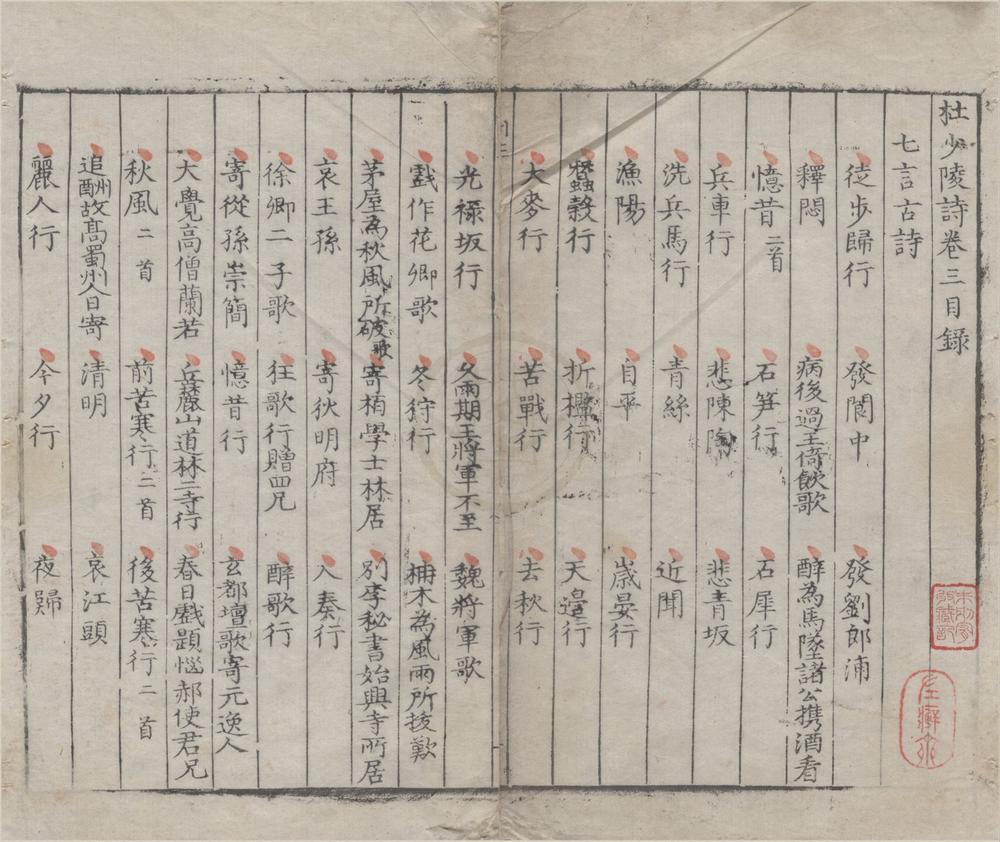 杜少陵詩卷三目録
七言古詩
徒步歸行 發閬中 發劉郎浦
釋悶 病後過王倚飲歌 醉為馬墜諸公携酒看
憶昔二首 石笋行 石犀行
兵車行 悲陳陶 悲青坂
洗兵馬行 青絲 近聞
漁陽 自平 歳晏行
蠶穀行 折檻行 天邉行
大麥行 苦戰行 去秋行
光禄坂行 久雨期王將軍不至 魏將軍歌
戯作花卿歌 冬狩行 柟木為風雨所拔歎
茅屋為秋風所破歌 寄栢學士林居 別李秘書始興寺所居
哀王孫 寄狄明府 入奏行
徐卿二子歌 狂歌行贈四兄 醉歌行
寄從孫崇簡 憶昔行 玄都壇歌寄元逸人
大覺高僧蘭若 丘麓山道林二寺行 春日戯題惱郝使君兄
秋風二首 前苦寒行二首 後苦寒行二首
追酬故髙蜀州人日寄 清明 哀江頭
麗人行 今夕行 夜歸